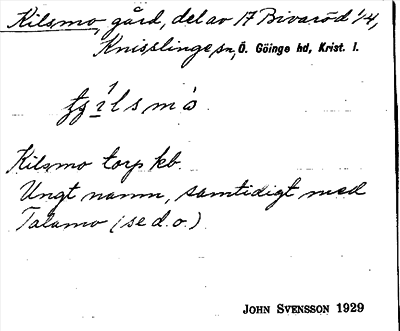 Kilsmo, gård, del av 17 Bivaröd 1/4,
Knisslinge sn, Ö. Göinge hd, Krist. l.
Kilsmo torp kb.
Ungt namn, samtidigt med
Talamo (se d. o.)
JOHN SVENSSON 1929